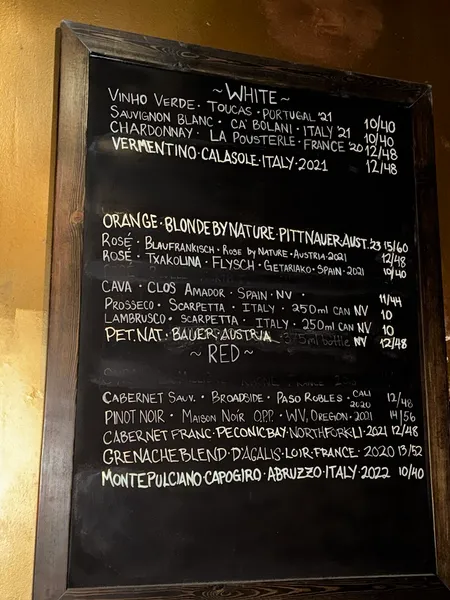 ~ WHITE ~
VINHO VERDE · TOUCAS · PORTUGAL '21 10/40
SAUVIGNON BLANC · CA' BOLANI · ITALY '21 10/40
CHARDONNAY · LA POUSTERLE · FRANCE '20 12/48
VERMENTINO · CALASOLE · ITALY · 2021 12/48
ORANGE · BLONDE BY NATURE · PITTNAUER · AUST. '23 15/60
ROSÉ · BLAUFRANKISCH · ROSE BY NATURE · AUSTRIA · 2021 12/48
ROSÉ · TXAKOLINA · FLYSCH · GETARIAKO · SPAIN · 2021 10/40
CAVA · CLOS AMADOR · SPAIN · NV · 11/44
PROSSECO · SCARPETTA · ITALY · 250ml CAN NV 10
LAMBRUSCO · SCARPETTA · ITALY · 250ml CAN NV 10
PET.NAT · BAUER · AUSTRIA 375ml bottle NV 12/48
~ RED ~
CABERNET SAUV. · BROADSIDE · PASO ROBLES · CALI 2020 12/48
PINOT NOIR · MAISON NOIR O.P.P. · WV, OREGON · 2021 14/56
CABERNET FRANC · PECONIC BAY · NORTH FORK LI · 2021 12/48
GRENACHE BLEND · D'AGALIS · LOIR · FRANCE · 2020 13/52
MONTEPULCIANO · CAPOGIRO · ABRUZZO · ITALY · 2022 10/40